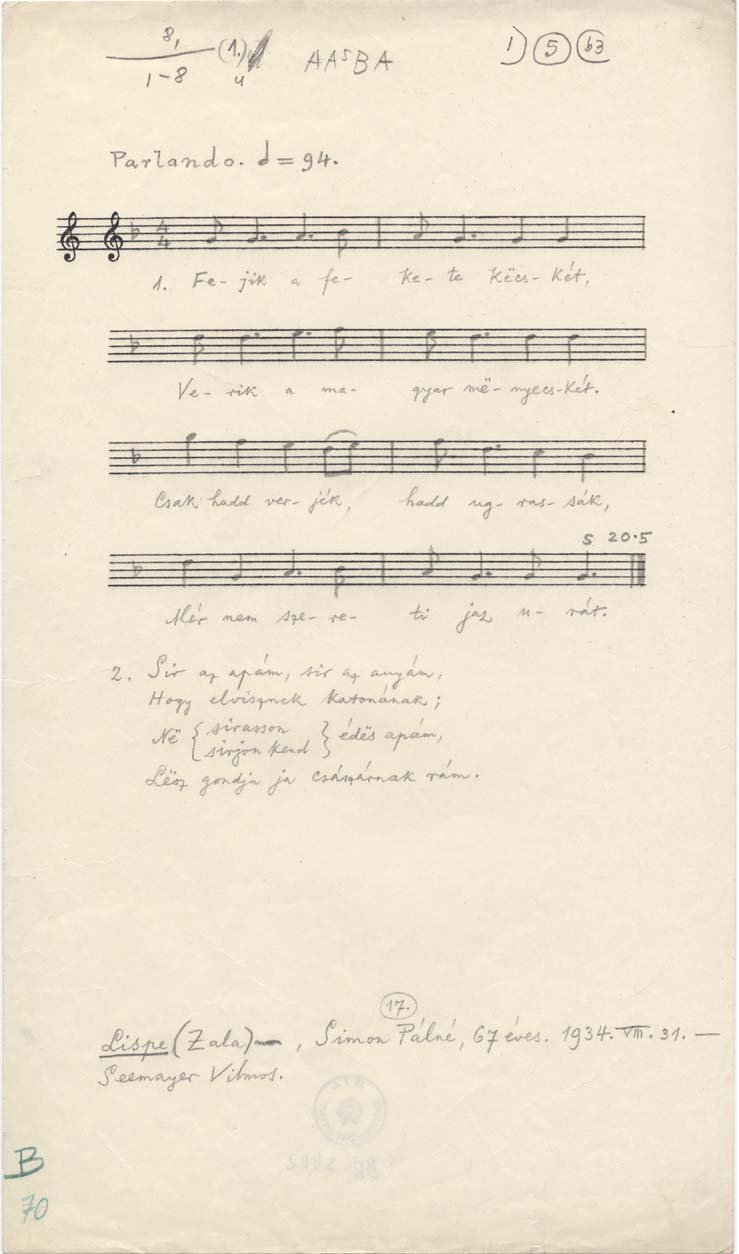 8, (1.) AA⁵BA 1) 5 b3
1–8 u
Parlando. = 94.
4
4
1. Fe- jik a fe- ke- te këcs- két,
Ve- rik a ma- gyar më- nyecs-két.
Csak hadd ver- jék, hadd ug- ras- sák,
S 20·5
Mér nem sze- re- ti jaz u- rát.
2. Sir az apám, sir az anyám,
Hogy elvisznek katonának;
Në { sirasson } édës apám,
sirjon kend
Lësz gondja ja császárnak rám.
17.
Lispe (Zala) — , Simon Pálné, 67 éves. 1934. VIII. 31. —
Seemayer Vilmos.
BR 3402
B
70